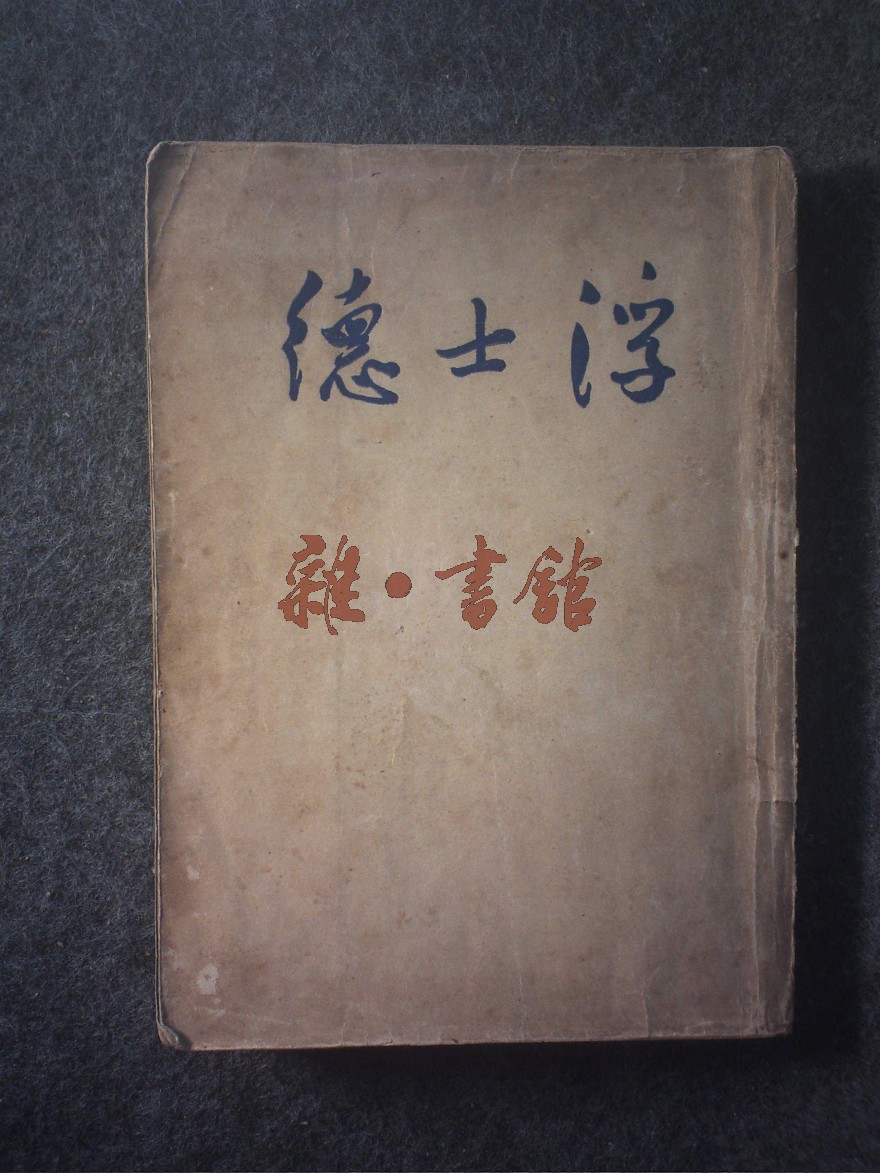 浮士德
雜·書館